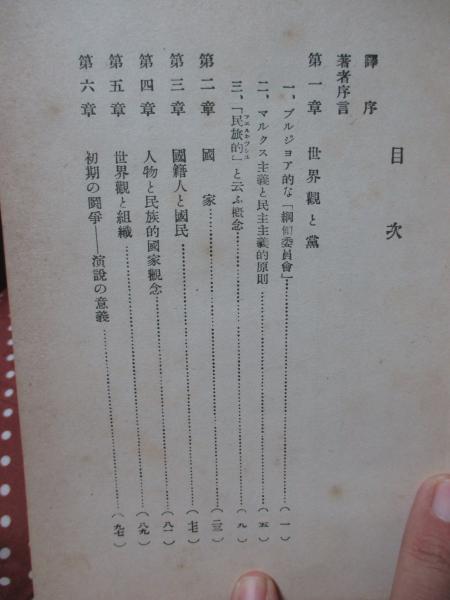 目次
譯序
著者序言
第一章 世界觀と黨
一、ブルジョア的な「綱領委員會」……(一)
二、マルクス主義と民主主義的原則……(五)
三、「民族的」と云ふ概念……(九)
第二章 國家……(二三)
第三章 國籍人と國民……(七七)
第四章 人物と民族的國家觀念……(八一)
第五章 世界觀と組織……(八九)
第六章 初期の鬪爭——演說の意義……(九七)